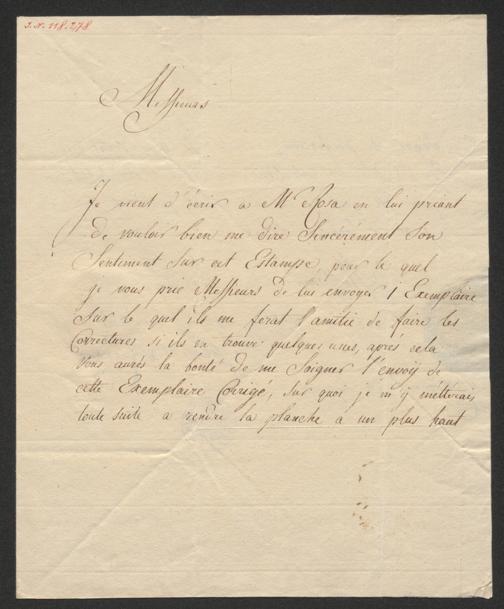 I.N. 118.278
Messieurs
Je vient d'écrir a Mr Rosa en lui priant
de vouloir bien me dire Sincérément Son
Sentiment Sur cet Estampe, pour le quel
je vous prie Messieurs de lui envoyer 1 Exemplaire
Sur le quel ils me ferat l'amitié de faire les
Corrections si ils en trouve quelques unes, après cela
Vous aurès la bonté de me Soigner l'envoij de
cette Exemplaire Corigé, Sur quoi je m'ij métterais
toute suite a rendre la planche a un plus haut